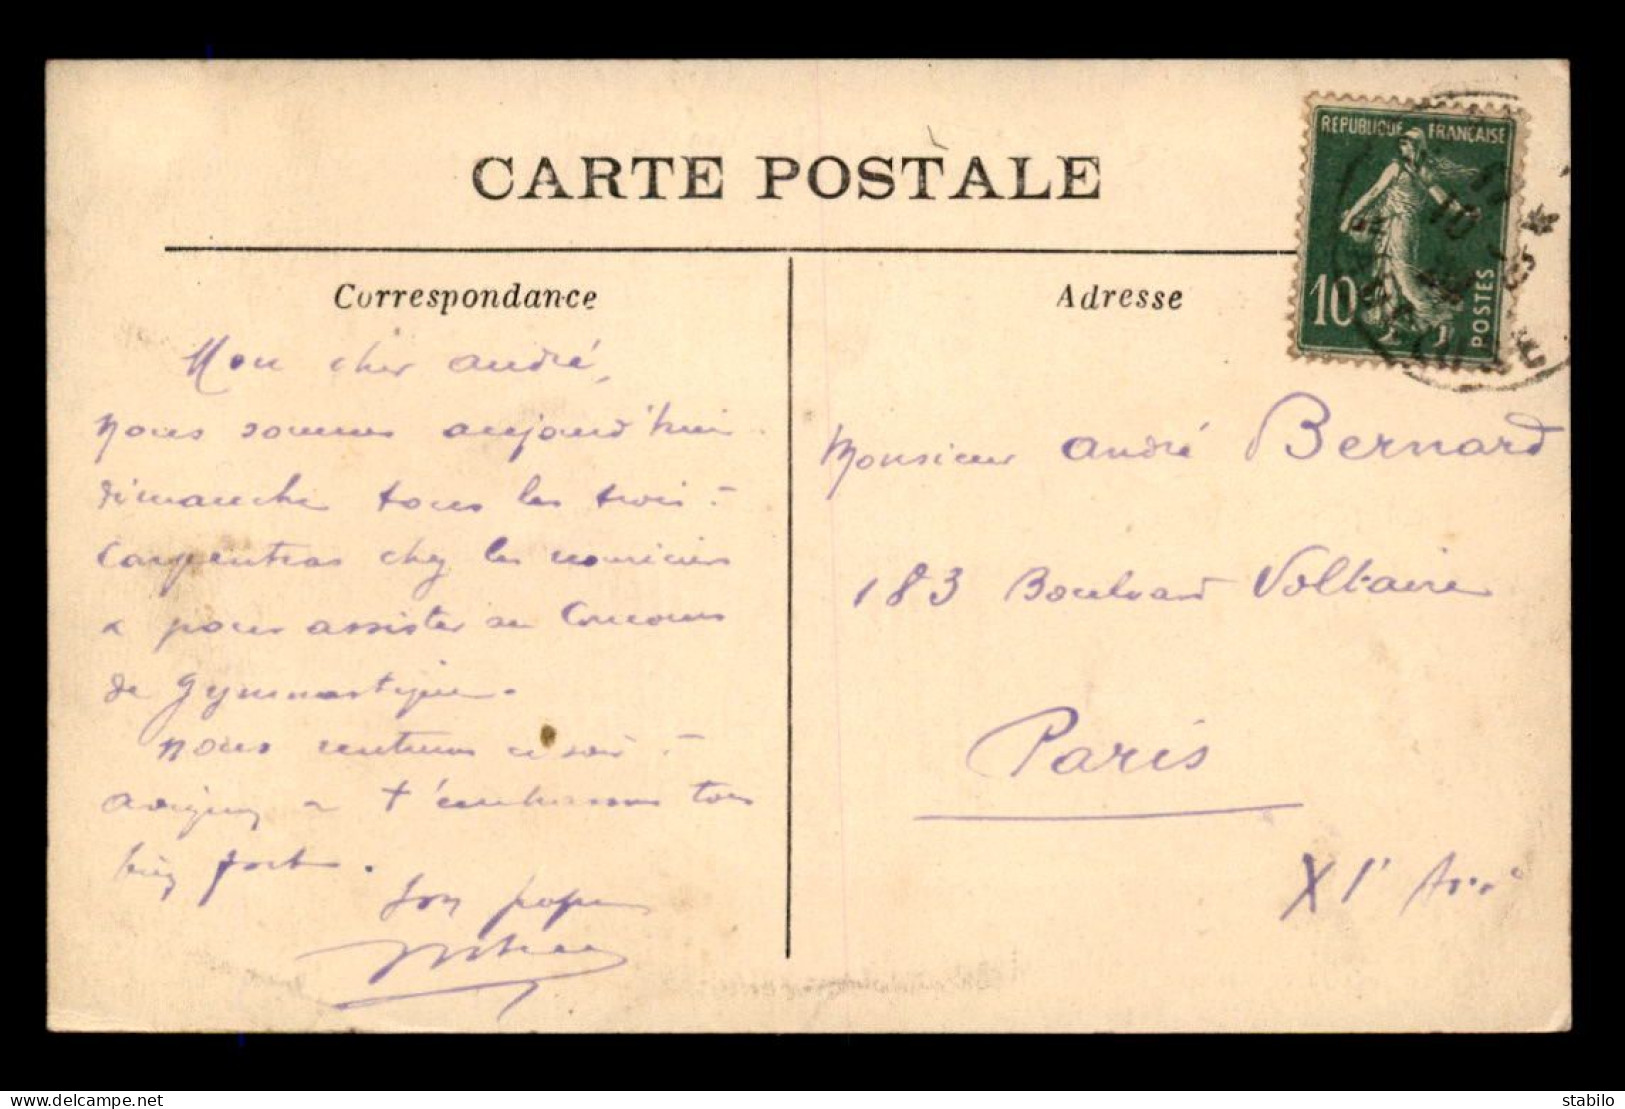 CARTE POSTALE
Correspondance
Adresse
REPUBLIQUE FRANÇAISE
10
POSTES
Mon cher andré,
nous sommes aujourd'hui
dimanche tous les trois à
Carpentras chez les
pour assister au Concours
de gymnastique.
nous rentrons ce soir à
avignon t'embrassons tous
bien fort.
Ton papa
Monsieur andré Bernard
183 Boulevard Voltaire
Paris
XIe Arrt
stabilo